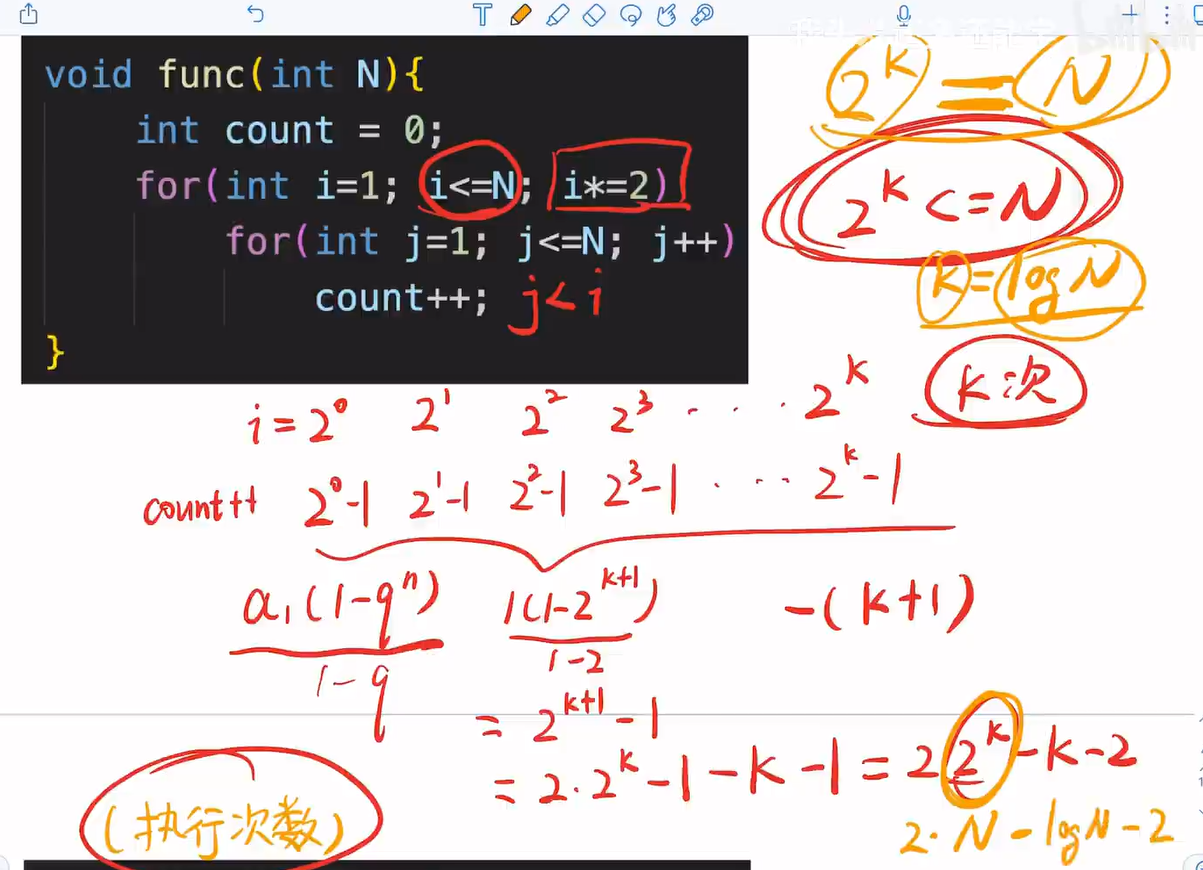 void func(int N){
int count = 0;
for(int i=1; i<=N; i*=2)
for(int j=1; j<=N; j++)
count++; j<i
}
2^k = N
2^k <= N
k = log N
k次
i = 2^0 2^1 2^2 2^3 · · · · 2^k
count++ 2^0-1 2^1-1 2^2-1 2^3-1 · · · · 2^k-1
a₁(1-q^n)/(1-q) 1(1-2^(k+1))/(1-2) -(k+1)
= 2^(k+1) - 1
= 2·2^k - 1 - k - 1 = 2 2^k - k - 2
(执行次数)
2·N - log N - 2